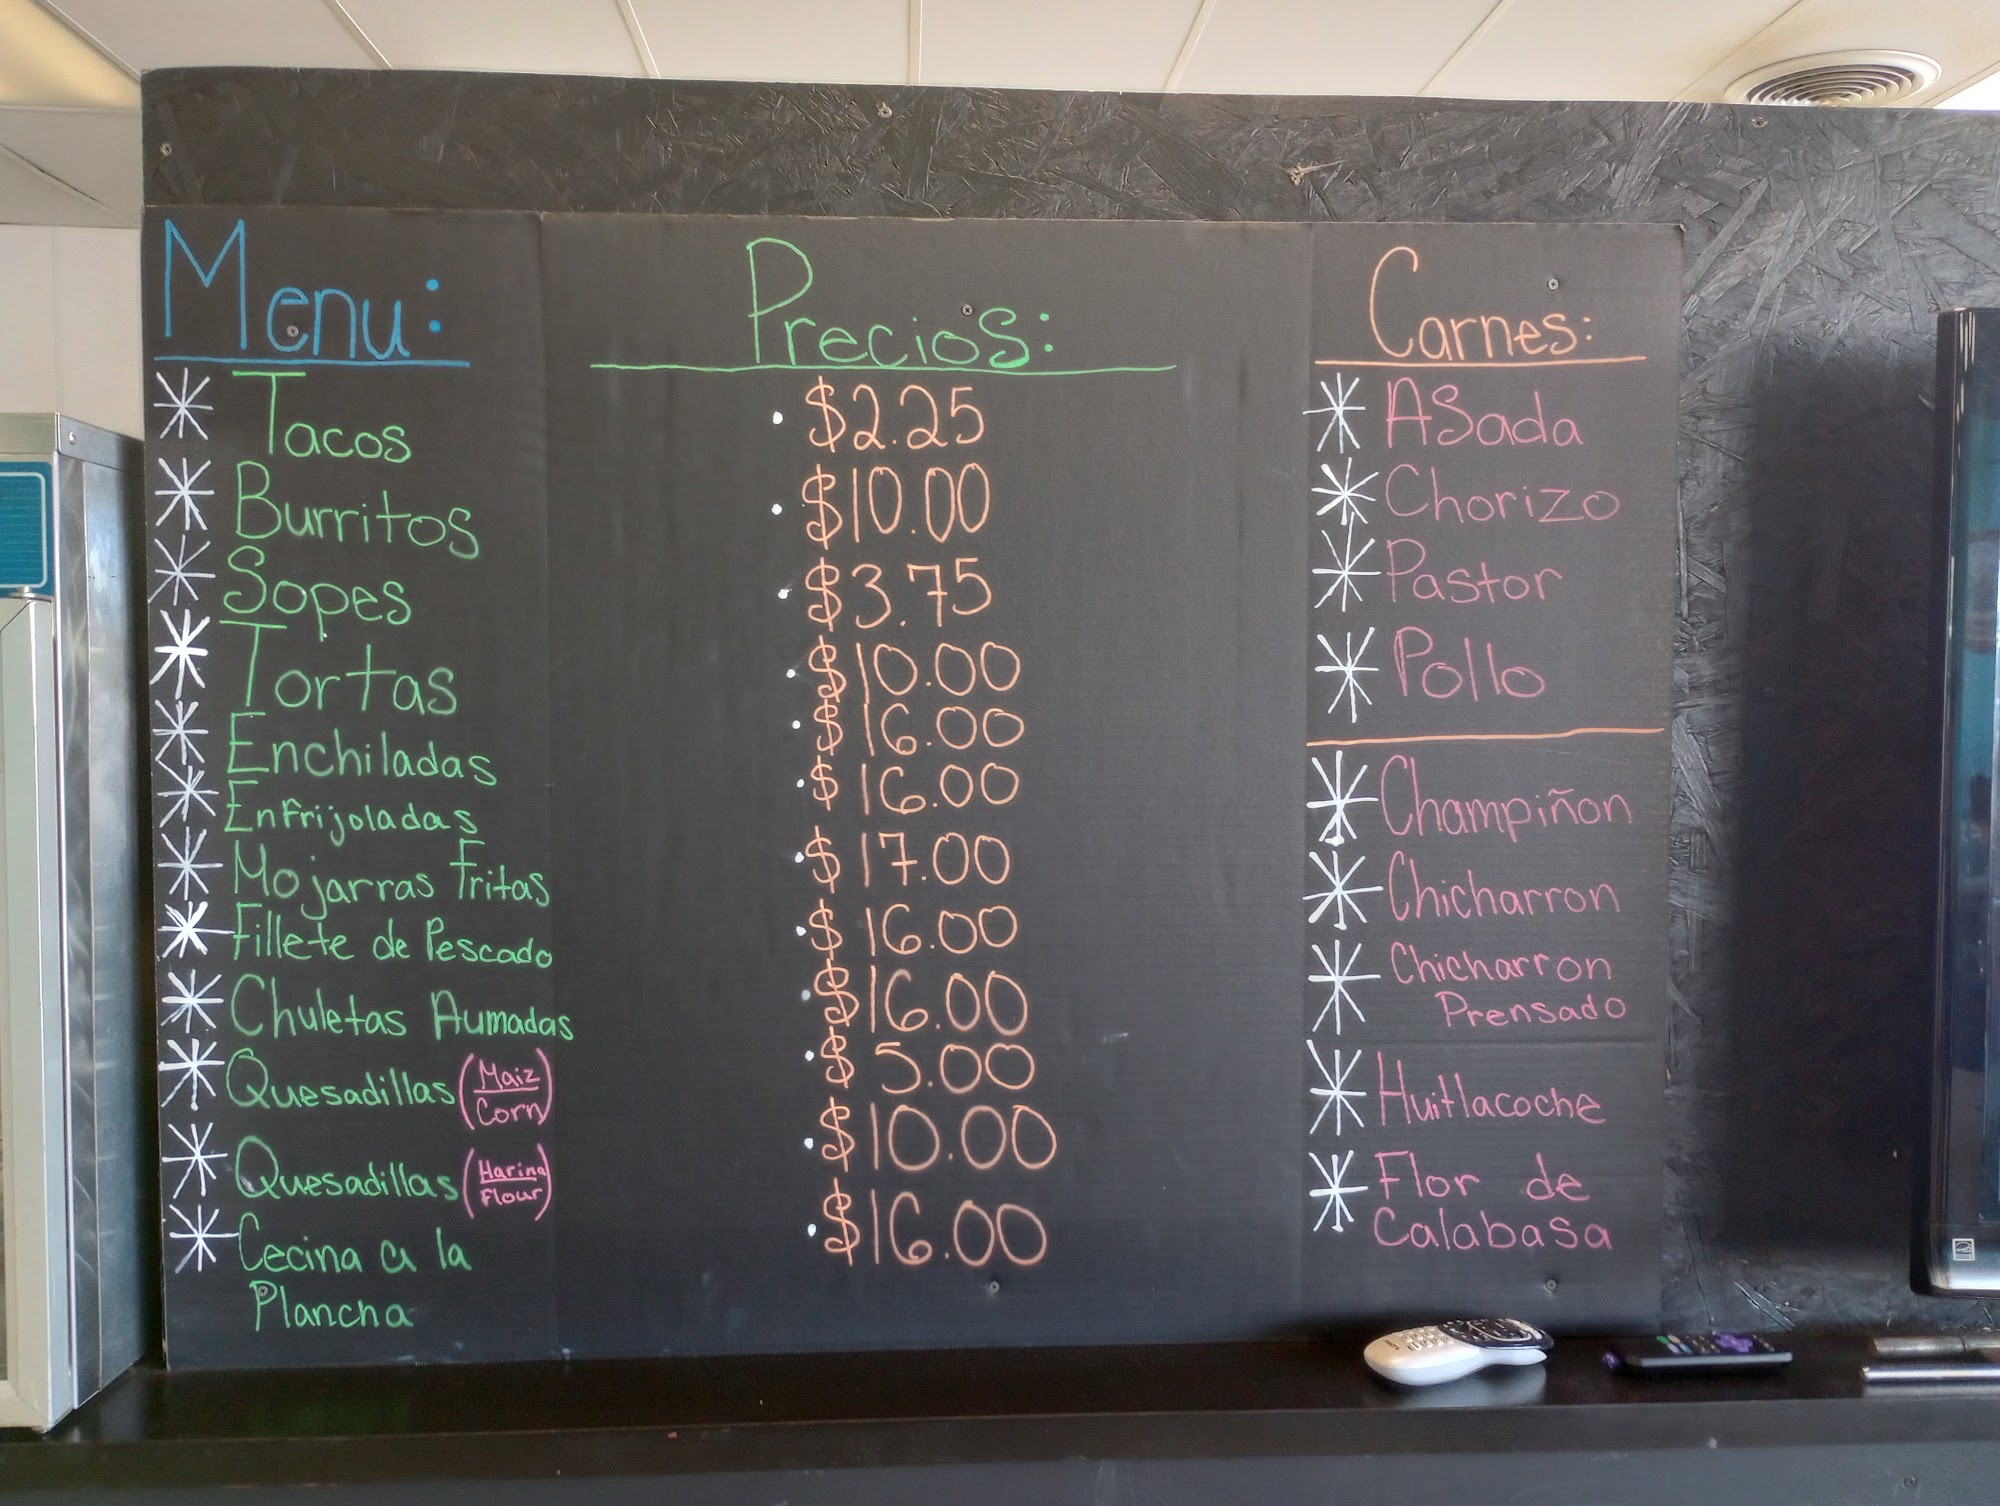 Menu:
Tacos
Burritos
Sopes
Tortas
Enchiladas
Enfrijoladas
Mojarras Fritas
Fillete de Pescado
Chuletas Aumadas
Quesadillas (Maiz
Corn)
Quesadillas (Harina
Flour)
Cecina a la
Plancha
Precios:
$2.25
$10.00
$3.75
$10.00
$16.00
$16.00
$17.00
$16.00
$16.00
$5.00
$10.00
$16.00
Carnes:
ASada
Chorizo
Pastor
Pollo
Champiñon
Chicharron
Chicharron
Prensado
Huitlacoche
Flor de
Calabasa